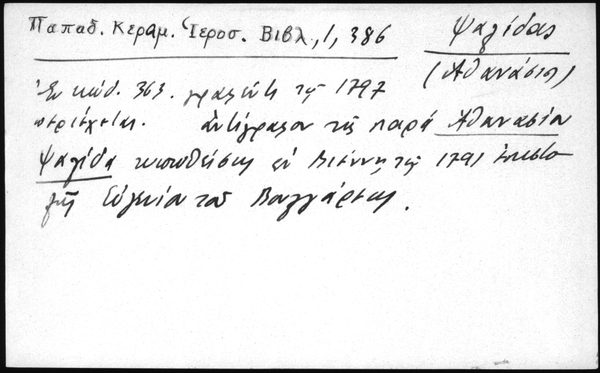 Παπαδ. Κεραμ. Ἱεροσ. Βιβλ., 1, 386
Ψαλίδας
(Ἀθανάσιος)
Ἐν κώδ. 363. γραφέντι τῷ 1797
περιέχεται. ἀντίγραφον τῆς παρὰ Ἀθανασίου
Ψαλίδα τυπωθείσης ἐν Βιέννῃ τῷ 1791 ἐπιστο
λῆς Εὐγενίου τοῦ Βουλγάρεως.